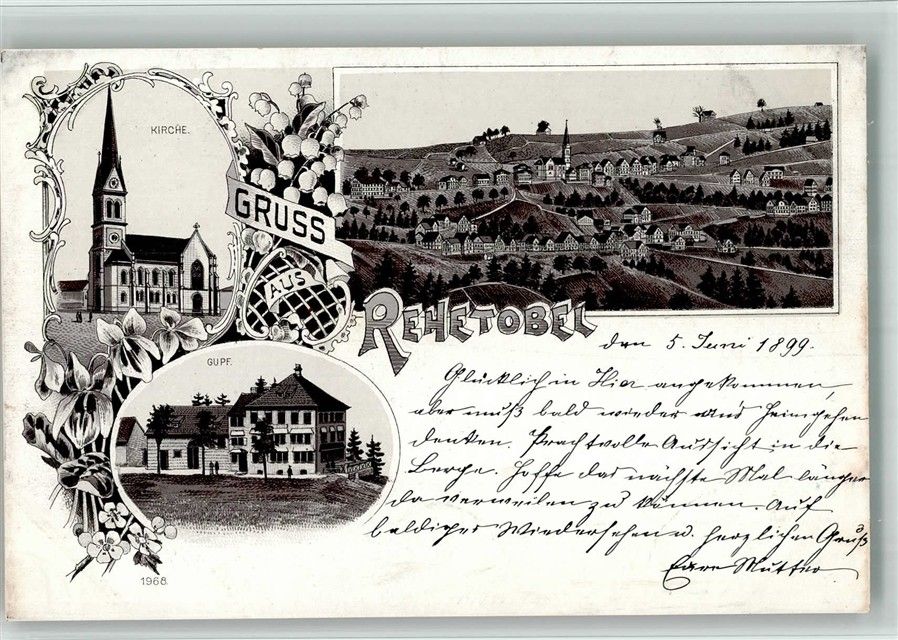 KIRCHE.
GRUSS
AUS
REHETOBEL
GUPF.
1968
den 5. Juni 1899.
Glücklich in Hier angekommen,
aber muß bald wieder an's heimgehen
denken. Prachtvolle Aussicht in die
Berge. Hoffe das nächste Mal länger
da verweilen zu können. Auf
baldiges Wiedersehen u. herzlichen Gruß
Eure Mutter